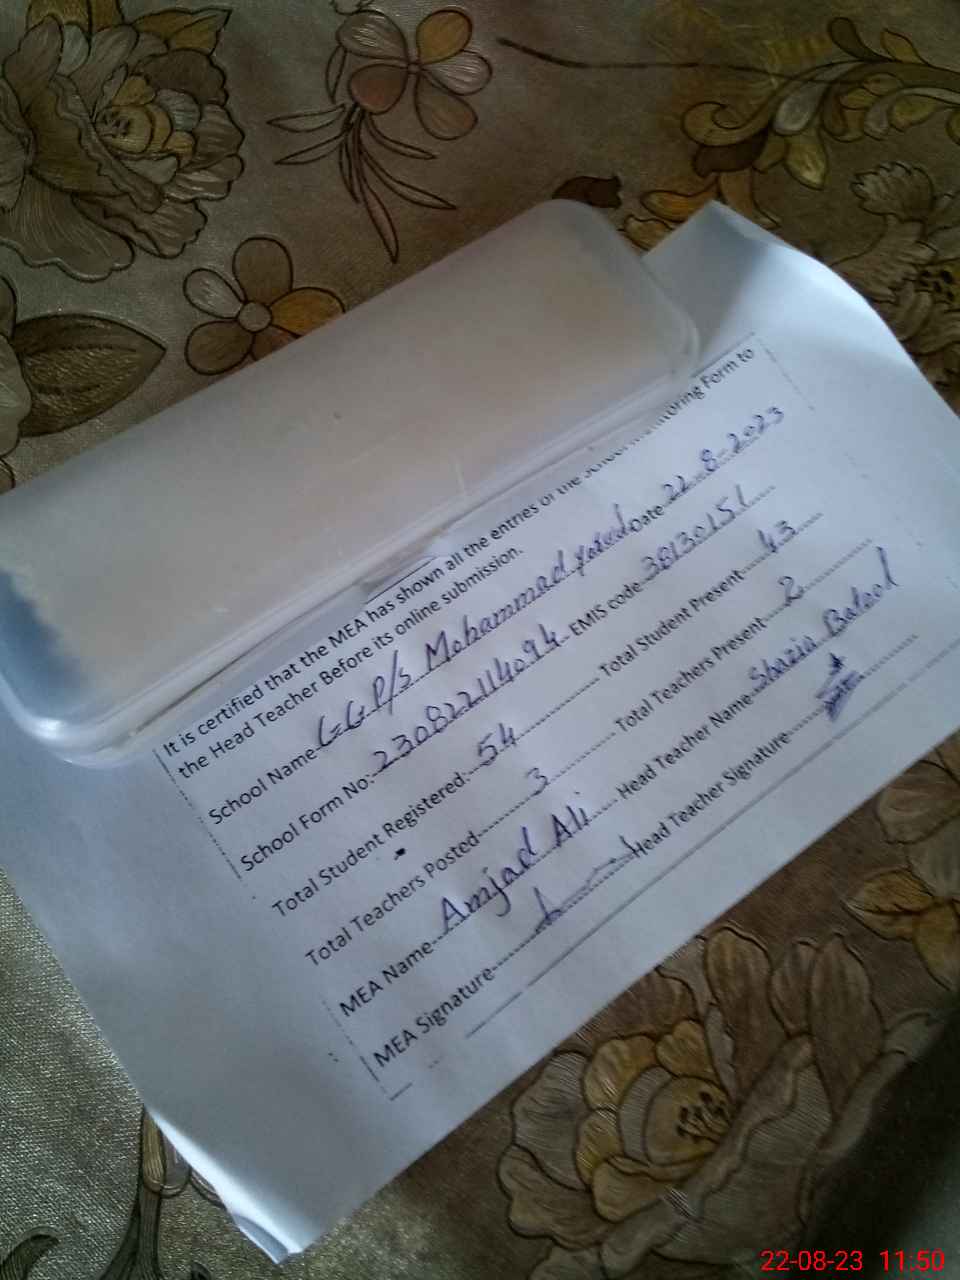 It is certified that the MEA has shown all the entries of the School Monitoring Form to
the Head Teacher Before its online submission.
School Name GGP/S Mohammad Date 22-8-2023
School Form No: 230822114094 EMIS code 38130151
Total Student Registered: 54 Total Student Present 43
Total Teachers Posted 3 Total Teachers Present 2
MEA Name Amjad Ali Head Teacher Name Shazia Batool
MEA Signature Head Teacher Signature
22-08-23 11:50